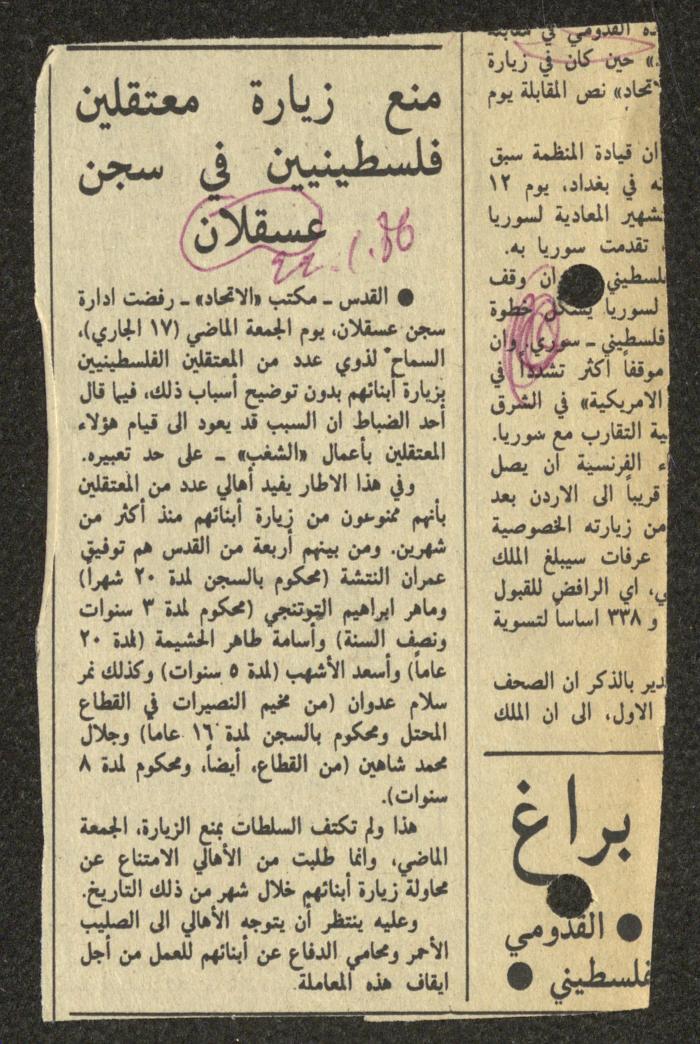 منع زيارة معتقلين
فلسطينيين في سجن
عسقلان
22.1.86
● القدس ـ مكتب «الاتحاد» ـ رفضت ادارة
سجن عسقلان، يوم الجمعة الماضي (١٧ الجاري)،
السماح لذوي عدد من المعتقلين الفلسطينيين
بزيارة أبنائهم بدون توضيح أسباب ذلك، فيما قال
أحد الضباط ان السبب قد يعود الى قيام هؤلاء
المعتقلين بأعمال «الشغب» ـ على حد تعبيره.
وفي هذا الاطار يفيد أهالي عدد من المعتقلين
بأنهم ممنوعون من زيارة أبنائهم منذ أكثر من
شهرين. ومن بينهم أربعة من القدس هم توفيق
عمران النتشة (محكوم بالسجن لمدة ٢٠ شهراً)
وماهر ابراهيم التوتنجي (محكوم لمدة ٣ سنوات
ونصف السنة) وأسامة طاهر الحشيمة (لمدة ٢٠
عاماً) وأسعد الأشهب (لمدة ٥ سنوات) وكذلك نمر
سلام عدوان (من مخيم النصيرات في القطاع
المحتل ومحكوم بالسجن لمدة ١٦ عاماً) وجلال
محمد شاهين (من القطاع، أيضاً، ومحكوم لمدة ٨
سنوات).
هذا ولم تكتف السلطات بمنع الزيارة، الجمعة
الماضي، وانما طلبت من الأهالي الامتناع عن
محاولة زيارة أبنائهم خلال شهر من ذلك التاريخ.
وعليه ينتظر أن يتوجه الأهالي الى الصليب
الأحمر ومحامي الدفاع عن أبنائهم للعمل من أجل
ايقاف هذه المعاملة.
القدومي في مقابلة
» حين كان في زيارة
تحاد» نص المقابلة يوم
ان قيادة المنظمة سبق
في بغداد، يوم ١٢
لتشهير المعادية لسوريا
تقدمت سوريا به.
فلسطيني وان وقف
لسوريا يشكل خطوة
فلسطيني ـ سوري. وان
موقفاً أكثر تشدداً في
الامريكية» في الشرق
ية التقارب مع سوريا.
الفرنسية ان يصل
قريباً الى الاردن بعد
من زيارته الخصوصية
عرفات سيبلغ الملك
ي، اي الرافض للقبول
و ٣٣٨ اساساً لتسوية
دير بالذكر ان الصحف
الاول، الى ان الملك
براغ
● القدومي
فلسطيني ●